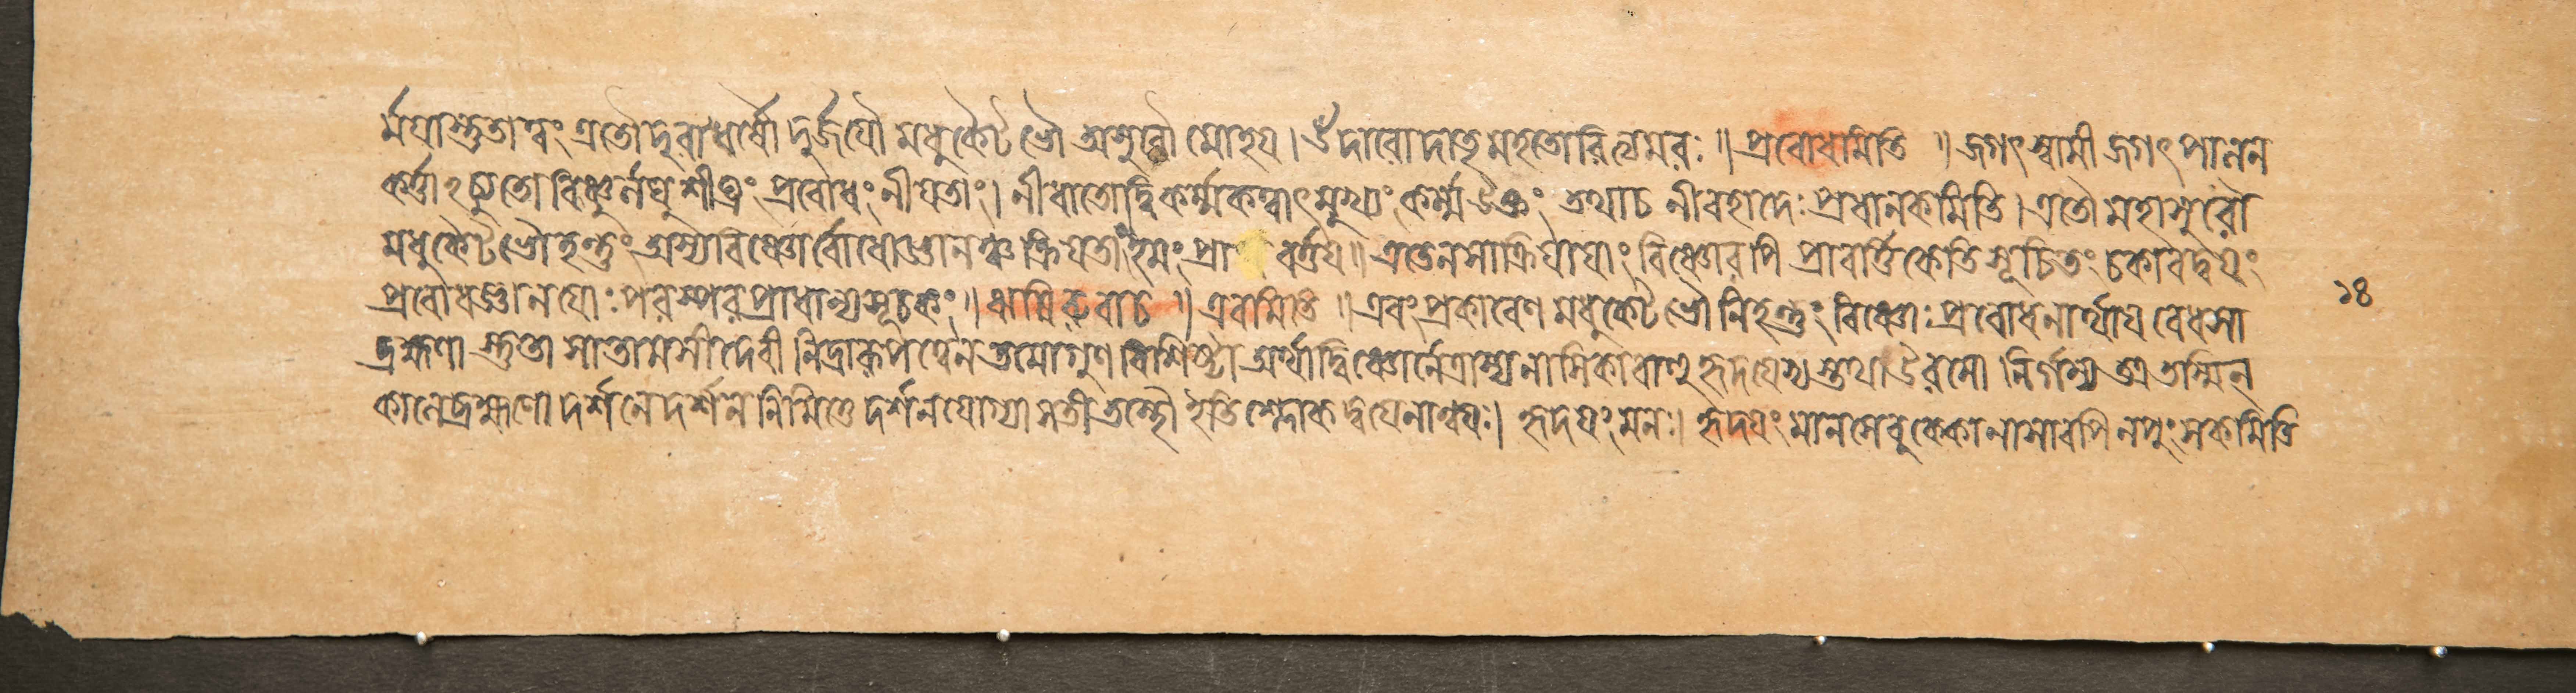 র্ময়াস্তুতা ত্বং এতৌ দুরাধর্ষৌ দুর্জয়ৌ মধুকৈটভৌ অসুরৌ মোহয়। উদারো দাতৃমহতোরিত্যমরঃ॥ প্রবোধমিতি॥ জগৎস্বামী জগৎপালন
কর্ত্তাঽচ্যুতো বিষ্ণুর্লঘু শীঘ্রং প্রবোধং নীয়তাং। নীধাতোর্দ্বিকর্ম্মকত্বাৎ মুখ্যং কর্ম্ম উক্তং তথাচ নীবহাদেঃ প্রধানকমিতি। এতৌ মহাসুরৌ
মধুকৈটভৌ হন্তুং অস্য বিষ্ণোর্বোধো জ্ঞানঞ্চ ক্রিয়তাং ইমং প্রবর্ত্তয়॥ এতেন সাক্রিয়ায়াং বিষ্ণোরপি প্রাবর্ত্তিকেতি সূচিতং চকারদ্বয়ং
প্রবোধজ্ঞানয়োঃ পরস্পরপ্রাধান্যসূচকং॥ ঋষিরুবাচ॥ এবমিতি॥ এবং প্রকারেণ মধুকৈটভৌ নিহন্তুং বিষ্ণোঃ প্রবোধনার্থায় বেধসা
ব্রহ্মণা স্তুতা সা তামসী দেবী নিদ্রারূপত্বেন তমোগুণবিশিষ্টা অর্থাদ্বিষ্ণোর্নেত্রাস্যনাসিকাবাহুহৃদয়েভ্যস্তথা উরসো নির্গম্য অত্র তস্মিন্
কালে ব্রহ্মণো দর্শনে দর্শননিমিত্তে দর্শনযোগ্যা সতী তস্থৌ ইতি শ্লোকদ্বয়েনান্বয়ঃ। হৃদয়ং মনঃ। হৃদয়ং মানসে বুক্কোরসোরপি নপুংসকমিতি
১৪